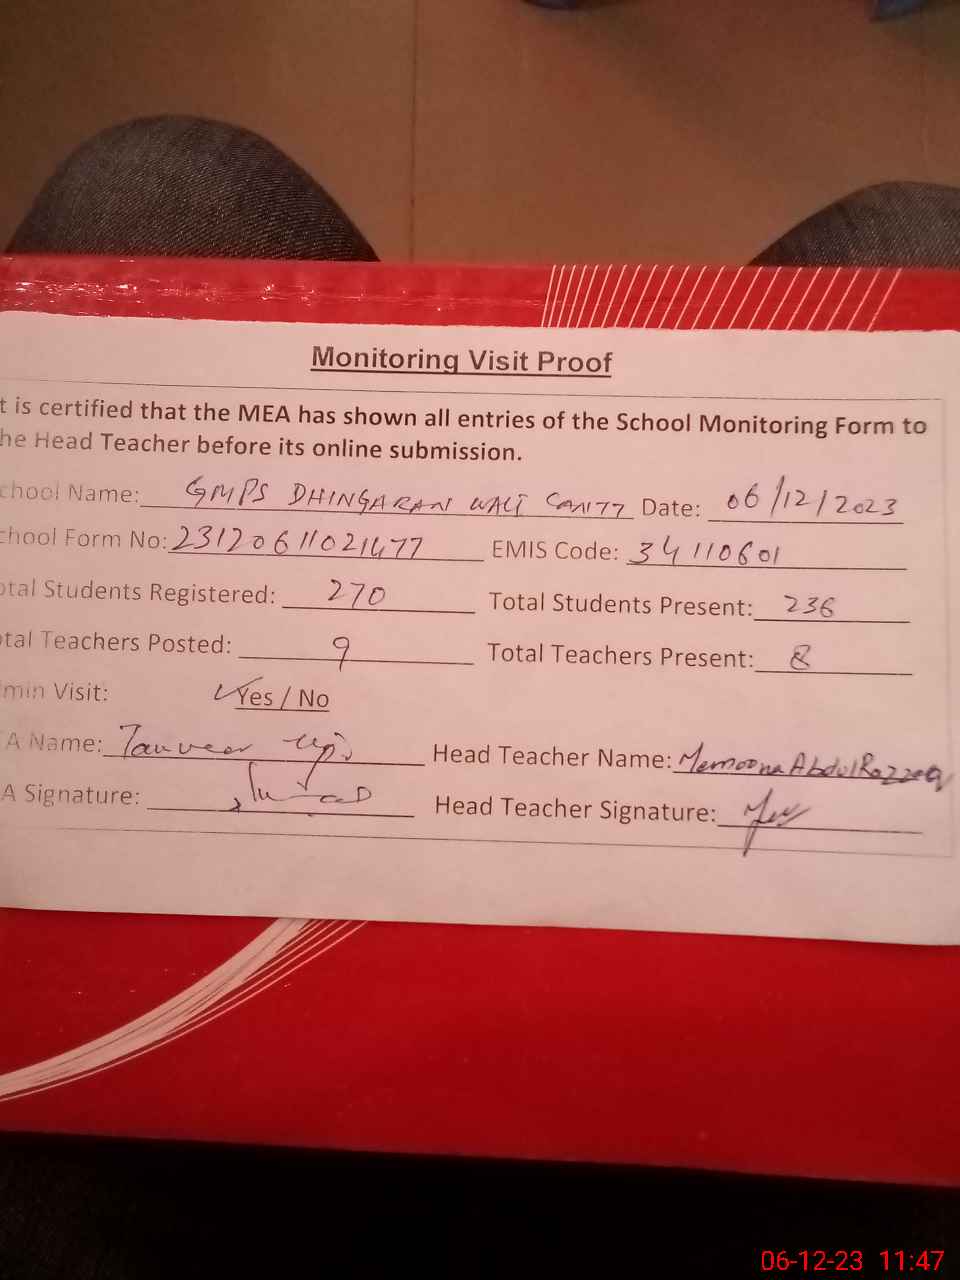 Monitoring Visit Proof
t is certified that the MEA has shown all entries of the School Monitoring Form to
he Head Teacher before its online submission.
chool Name: GMPS DHINGARAN WALI CANTT Date: 06/12/2023
chool Form No: 23120611021477 EMIS Code: 34110601
otal Students Registered: 270 Total Students Present: 236
otal Teachers Posted: 9 Total Teachers Present: 8
min Visit: Yes / No
A Name: Tanveer Head Teacher Name: Memoona Abdul Razzaq
A Signature: Head Teacher Signature:
06-12-23 11:47